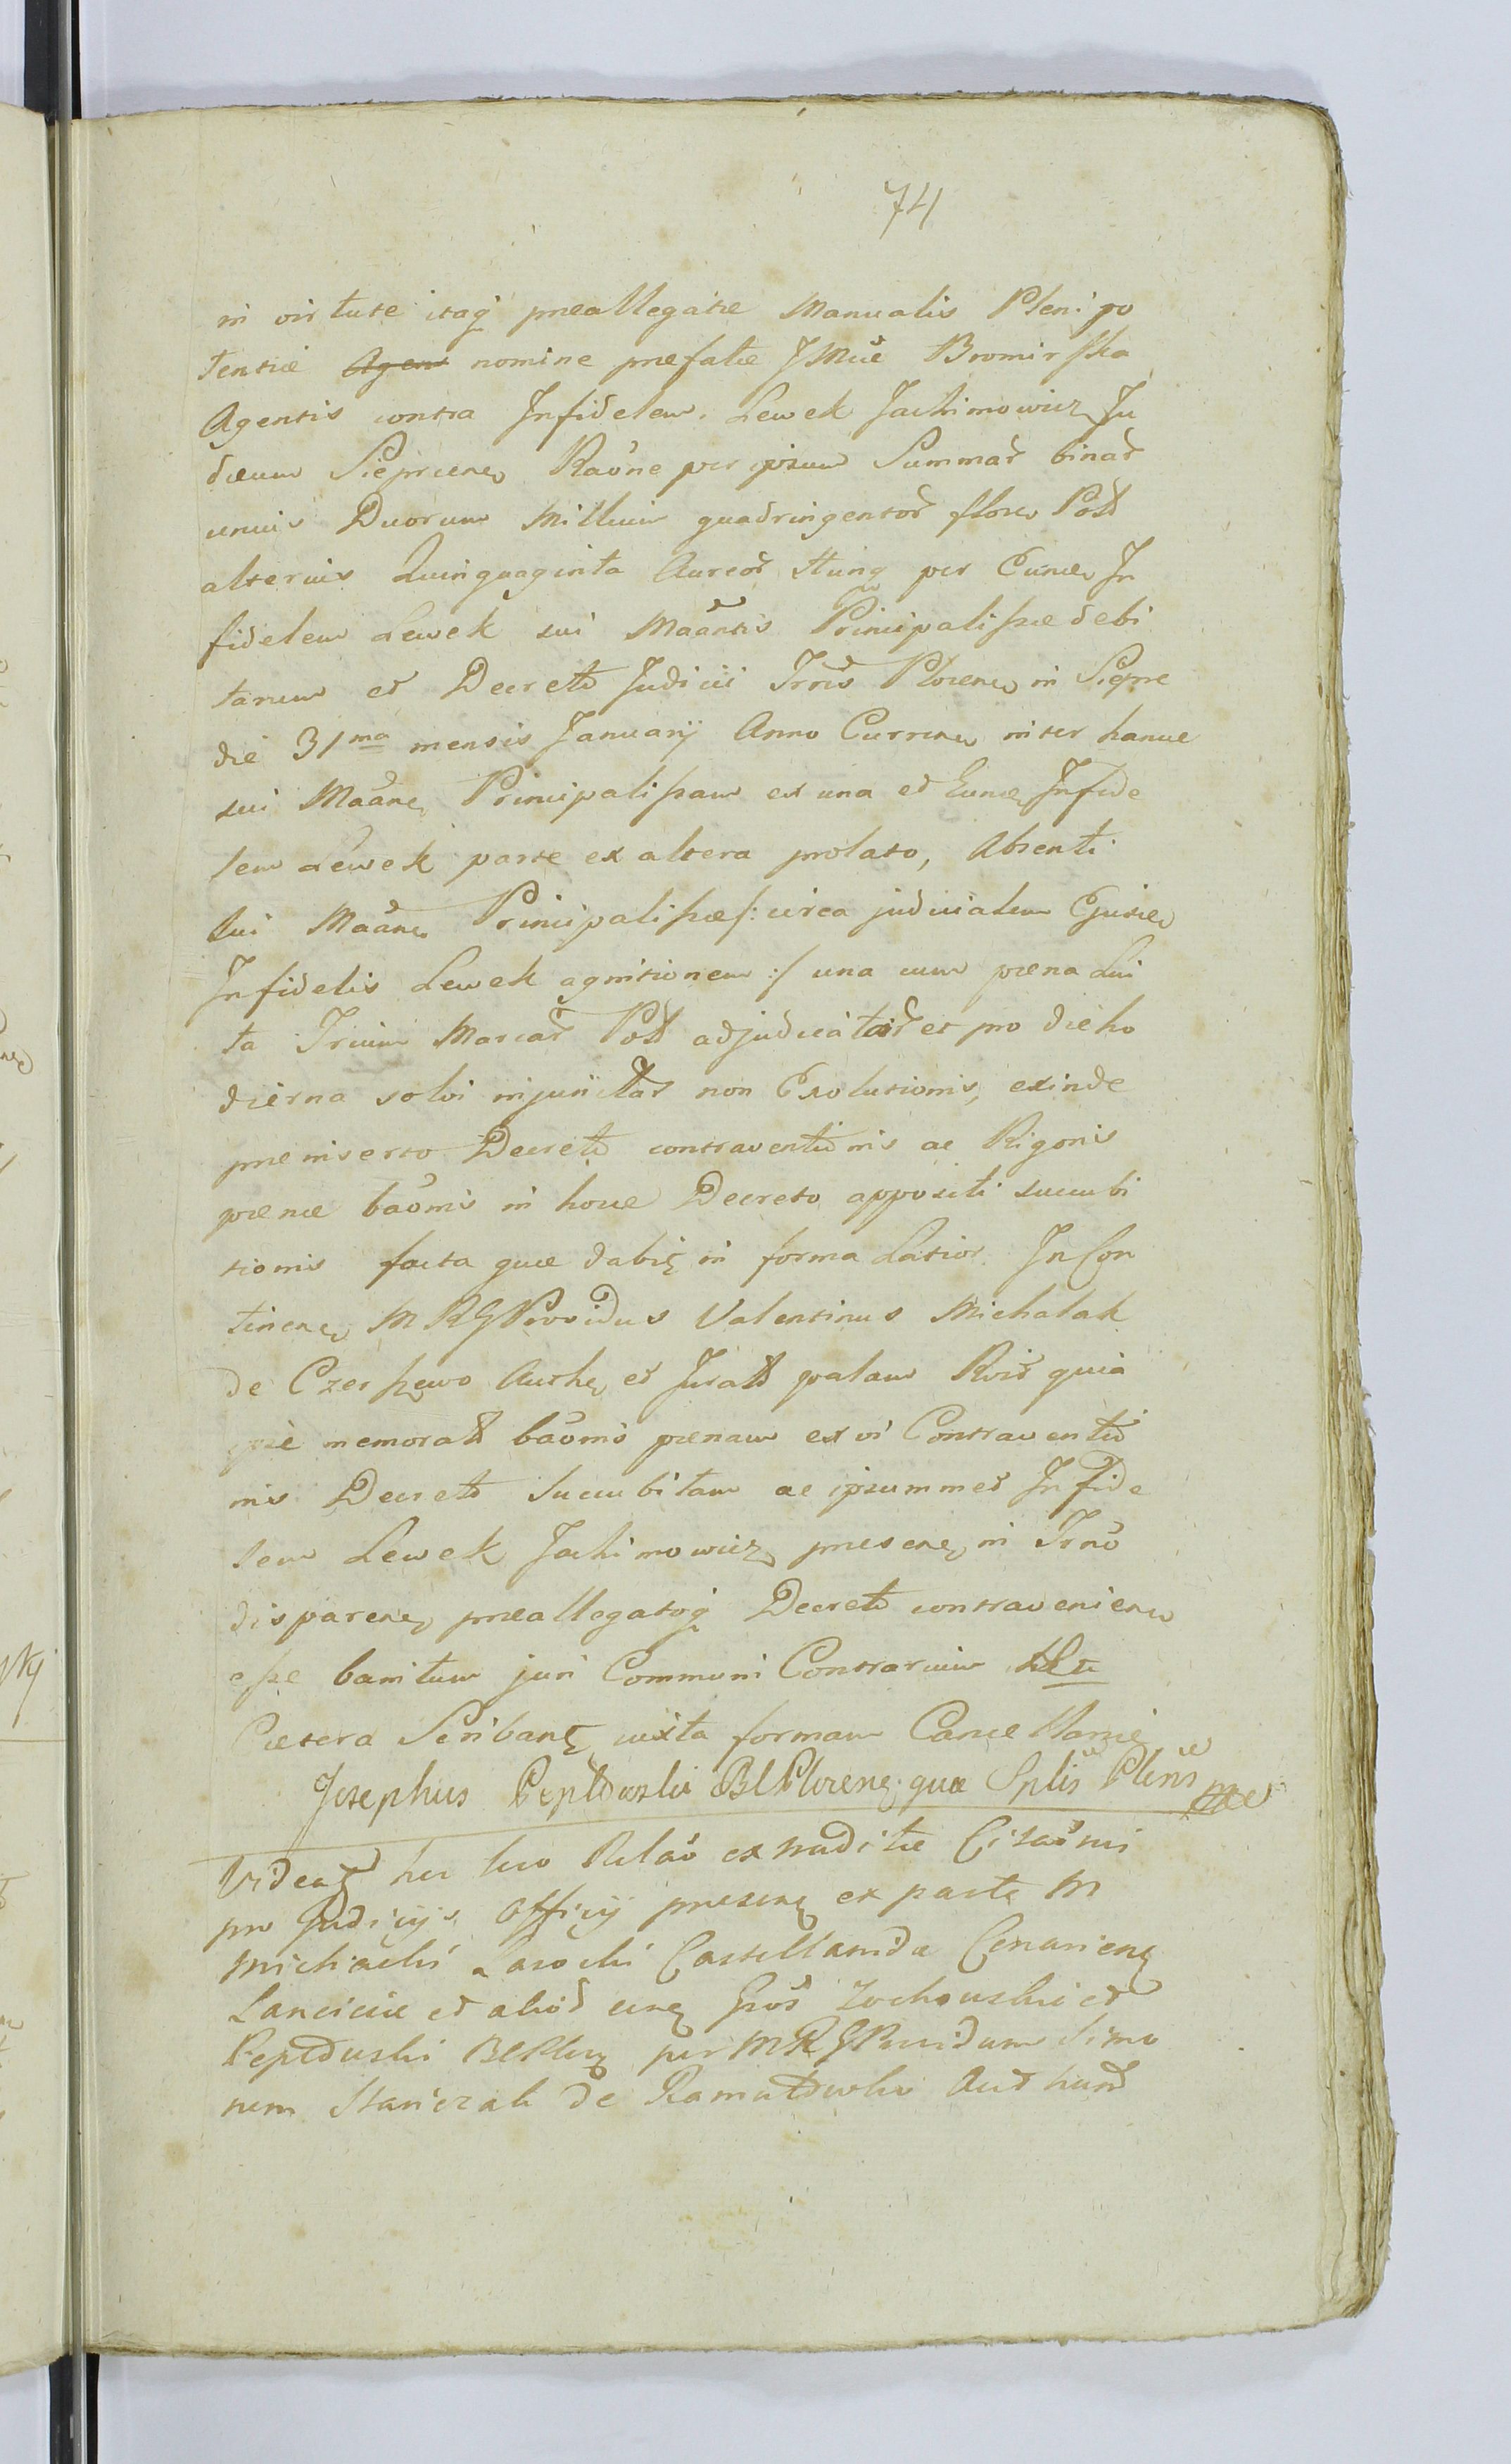 74
in virtute itaq preallegatæ Manualis Plenipo
tentiæ Agens nomine præfatæ JMcæ Bromirska
Agentis contra Infidelem Lewek Jachimowicz Ju
dæum Sieprcenẽ Raõne per ipsum Summar binar
unius Duorum Millium quadringentor floren Poll
alterius Quinquaginta Aureor Hung per Eunde In
fidelem Lewek sui Maãntis Principalissæ debi
tarum et Decreto Judicii Trris Plocen in Siepre
die 31ma mensis Januarÿ Anno Curren inter hance
sui Maãn Principalissam ex una et Eunde Infide
lem Lewek parte ex altera prolato, Absenti
sui Maãn Principalissæ /: circa judicialem Ejusde
Infidelis Lewek agnitionem :/ una cum pæna Lui
ta Trium Marcar Poll adjudicatar et pro die ho
dierna solvi injunctar non Exolutionis, exinde
præinserto Decreto contraventionis ac Rigoris
pænæ baõnis in hoce Decreto appositi succubi
tionis facta quæ dabit in forma Latior. In Con
tinen MRG Providus Valentinus Michalak
de Czerszewo Authen et Jurat palam Rvit quia
præ memorat baõnis pænam ex vi Contraventio
nis Decreto Succubitam ac ipsummet Infide
lem Lewek Jachimowicz, presen in Trno
disparen, preallegatoq Decreto contravenien
esse banitum juri Communi Contrarium
Cætera Scribant juxta formam Cancellariæ
Josephus Peplowski BC Plocen qua Splis Plens
Videat hic loco Relaõ extraditæ Citaõnis
pro Judicÿs Officÿ presen ex parte M
Michaelis Lasocki Castellanida Conarien
Lanciciæ et alior circ Gros Zochowski et
Peplowski BC Ploc per MRG Providum Simo
nem Stanczak de Ramutowko Authund